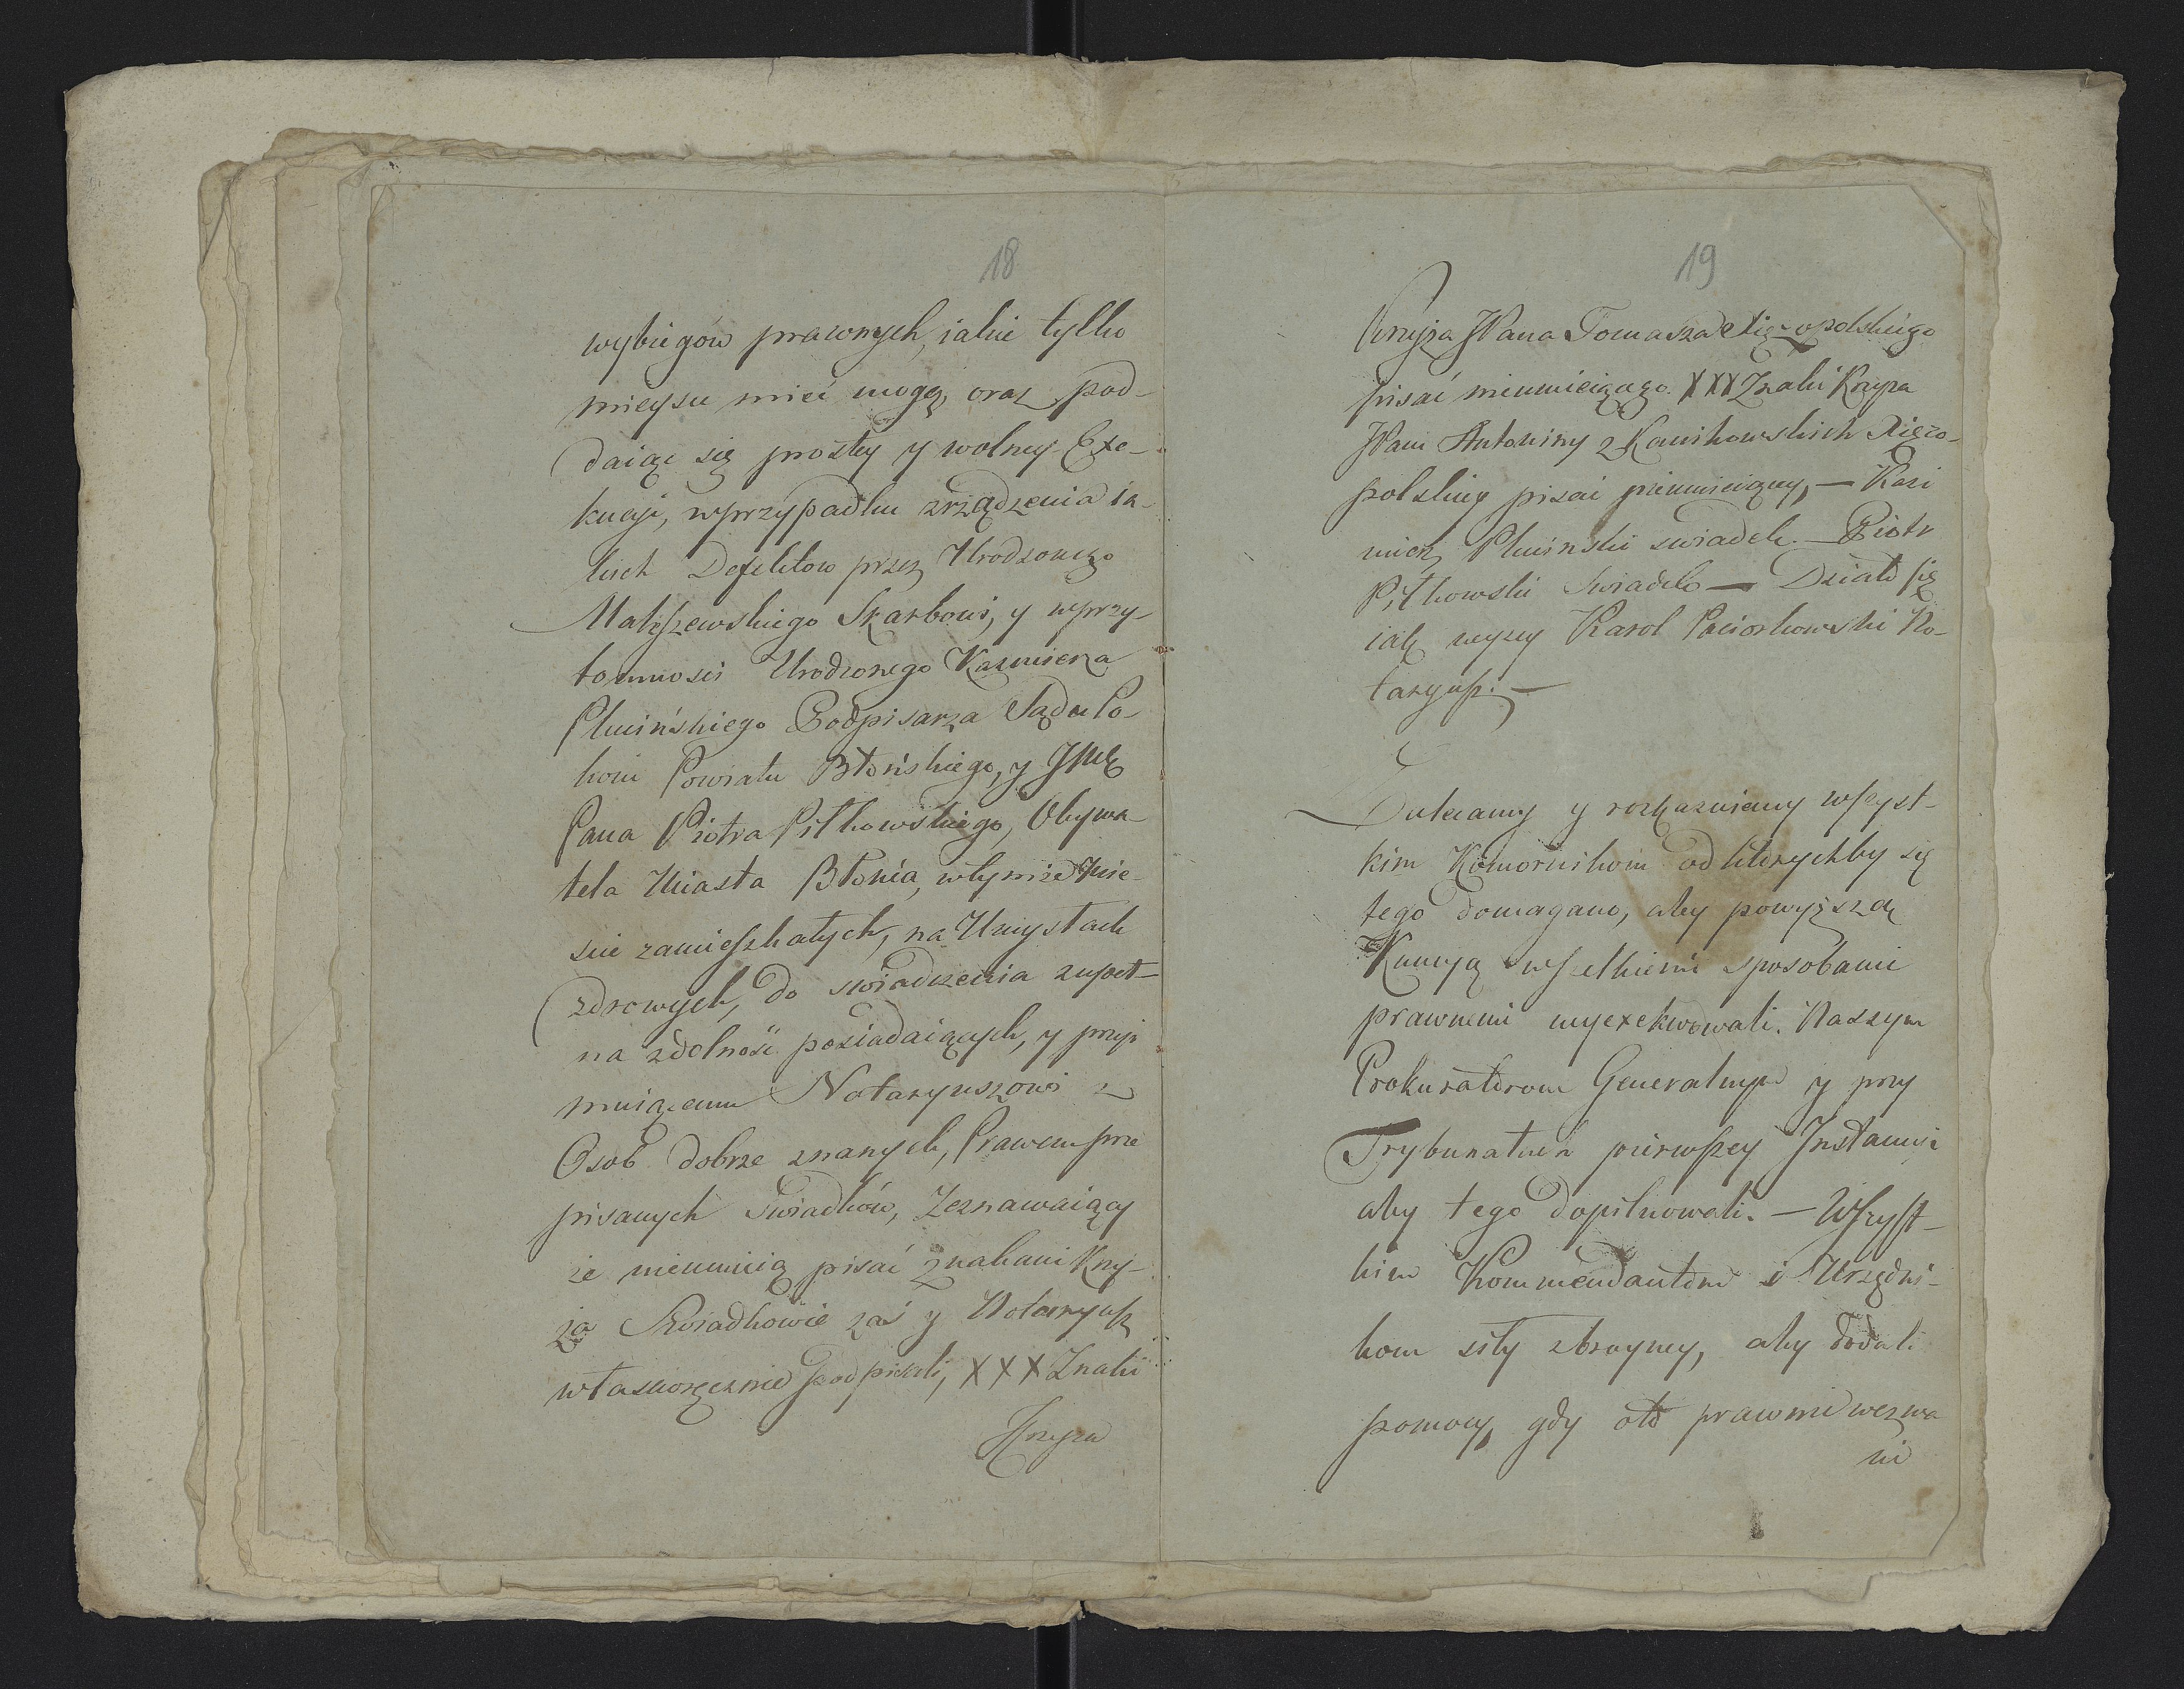 18
wybiegów prawnych, iakie tylko
mieysce mieć mogą, oraz pod-
daiąc się prostey y wolney Exe-
kucyi, wprzypadku zrządzenia ia-
kich Defektow przez Urodzonego
Małyszewskiego Skarbowi, y wprzy-
tomności Urodzonego Kazmierza
Plucińskiego Podpisarza Sądu Po-
koiu Powiatu Błońskiego, y
Pana Piotra Pitkowskiego, Obywa-
tela Miasta Błonia, wtymże Mie-
scie zamieszkałych, na Umysłach
zdrowych, do swiadczenia zupeł-
na zdolność posiadaiących, y przyi
muiącemu Notaryuszowi z
Osob dobrze znanych, Prawem prze
pisanych Swiadków, Zeznawaiący
że nieumieią pisać znakami Krzy-
ża Swiadkowie zaś y Notaryusz
własnoręcznie podpisali, XXX Znaki
Krzyża
19
Krzyża JPana Tomasza Xięzopolskiego
pisać nieumieiącego. XXX Znaki Krzyża
JPani Antoniny z Kanikowskich Xięzo-
polskiey pisać nieumieiącey, — Kazi
mierz Pluciński swiadek. — Piotr
Pitkowski Swiadek — Działo się
iak wyzey Karol Paciorkowski No-
taryusz. —
Zalecamy y rozkazuiemy wszyst-
kim Komornikom od którychby się
tego domagano, aby powyższą
Kaucyą wszelkiemi sposobami
prawnemi wyexekwowali. Naszym
Prokuratorom Generalnym y przy
Trybunałach pierwszey Instancyi
aby tego dopilnowali. — Wszyst-
kim Kommendantom i Urzędni-
kom siły zbroyney, aby dodali
pomocy, gdy oto prawnie wezwa
ni